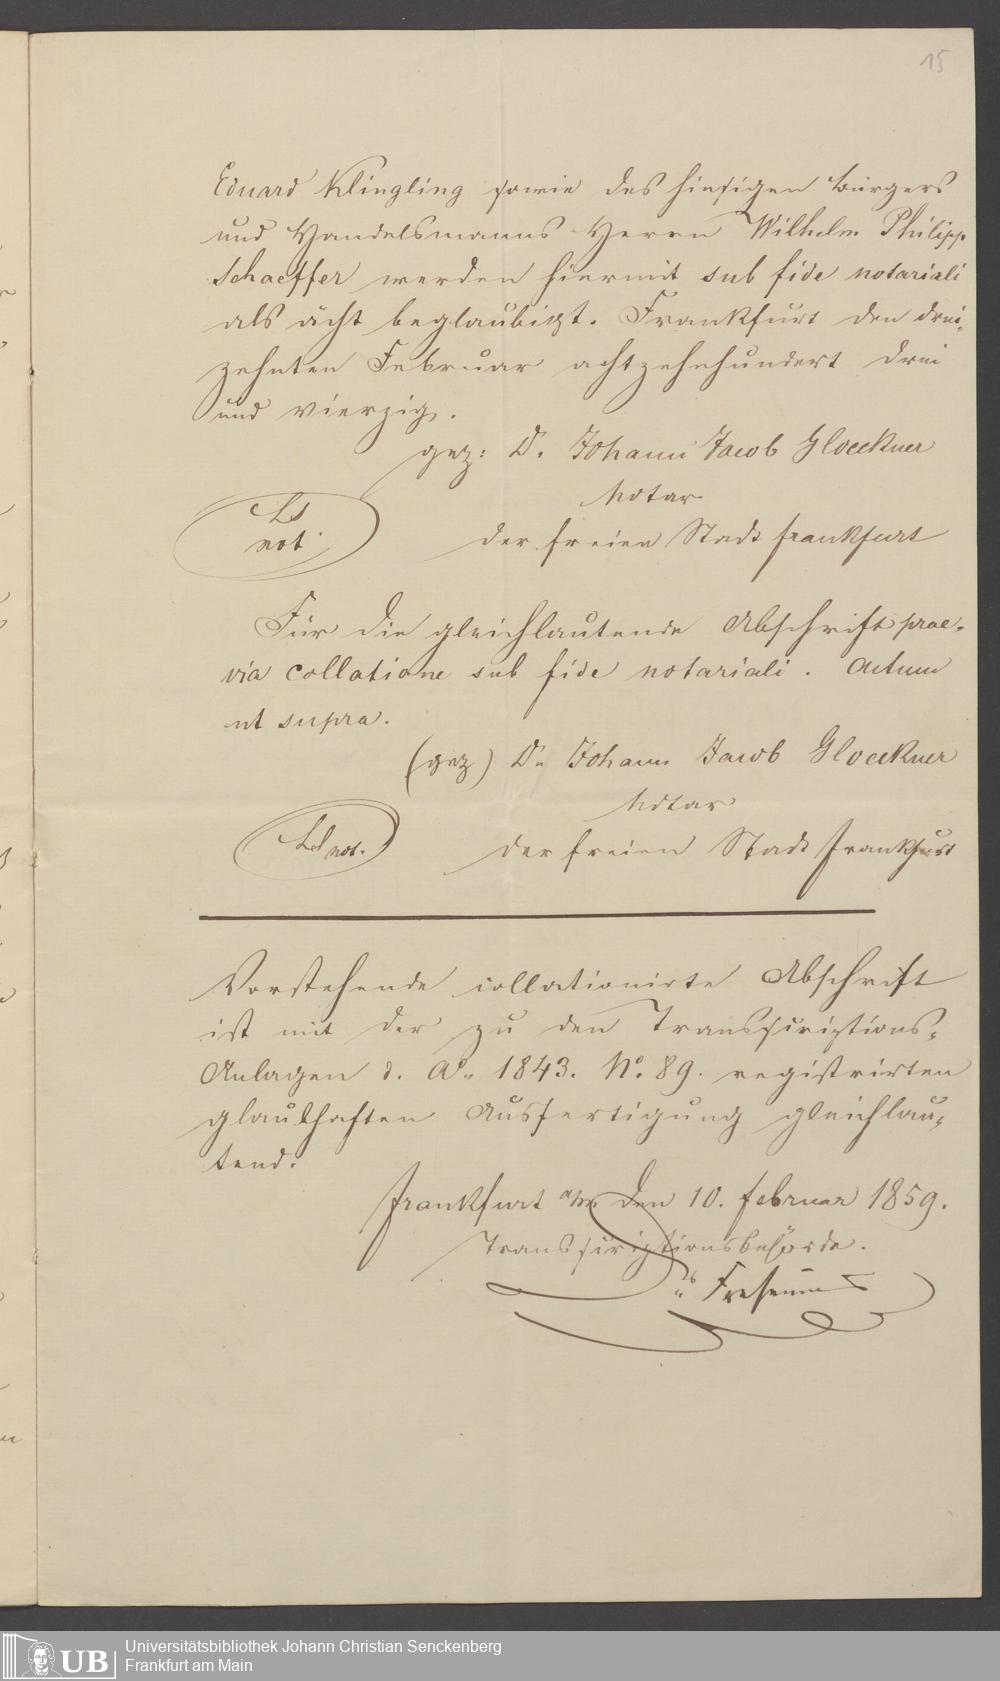 15
Eduard Klingling sowie des hiesigen Bürgers
und Handelsmanns Herrn Wilhelm Philipp
Schaeffer werden hiermit sub fide notariali
als ächt beglaubigt. Frankfurt den drei-
zehnten Februar achtzehnhundert drei
und vierzig.
gez: Dr. Johann Jacob Gloeckner
Notar
LS
not.
der freien Stadt Frankfurt
Für die gleichlautende Abschrift prae-
via collatione sub fide notariali. Actum
ut supra.
(gez) Dr. Johann Jacob Gloeckner
Notar
LS not.
der freien Stadt Frankfurt
Vorstehende collationirte Abschrift
ist mit der zu den Transscriptions-
Anlagen d. Ao. 1843. No. 89. registrirten
glaubhaften Ausfertigung gleichlau-
tend.
Frankfurt a/m den 10. Februar 1859.
Transscriptionsbehörde.
Universitätsbibliothek Johann Christian Senckenberg
Frankfurt am Main
UB